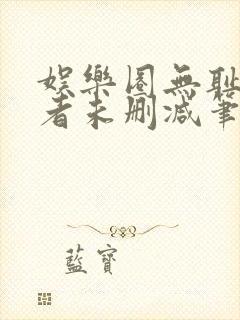 娛樂圈無恥
者未刪減筆
藍寶